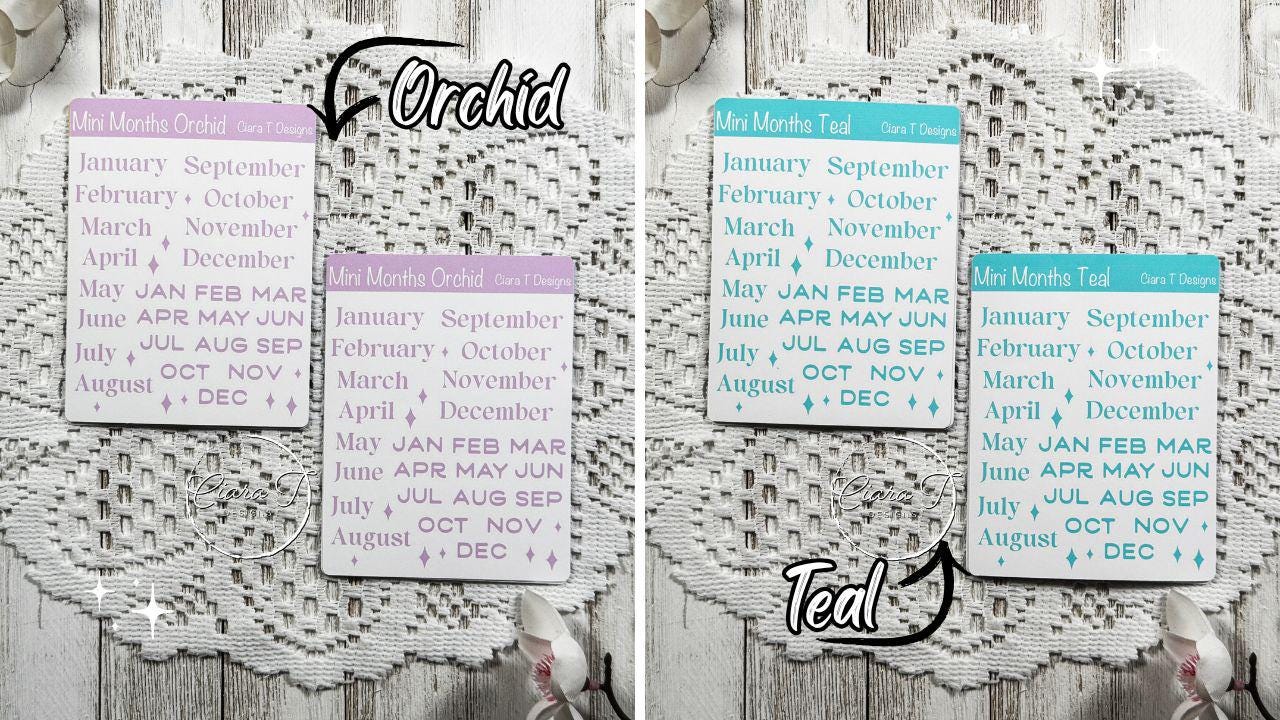 Orchid
Mini Months Orchid Ciara T Designs
January September
February October
March November
April December
May JAN FEB MAR
June APR MAY JUN
July JUL AUG SEP
August OCT NOV
DEC
Mini Months Orchid Ciara T Designs
January September
February October
March November
April December
May JAN FEB MAR
June APR MAY JUN
July JUL AUG SEP
August OCT NOV
DEC
Ciara T
DESIGNS
Mini Months Teal Ciara T Designs
January September
February October
March November
April December
May JAN FEB MAR
June APR MAY JUN
July JUL AUG SEP
August OCT NOV
DEC
Mini Months Teal Ciara T Designs
January September
February October
March November
April December
May JAN FEB MAR
June APR MAY JUN
July JUL AUG SEP
August OCT NOV
DEC
Ciara T
DESIGNS
Teal